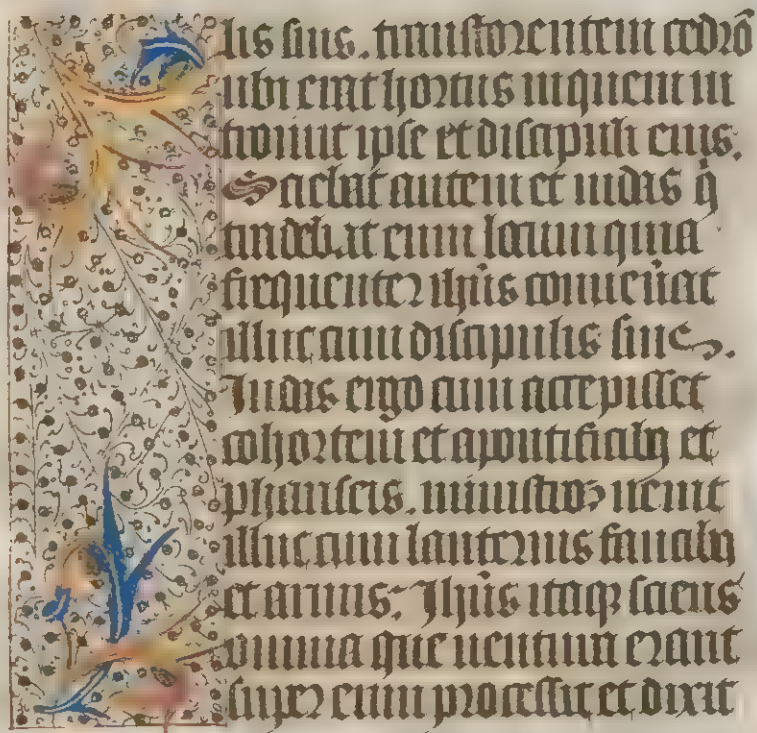 lis suis. trans torrentem cedrō
ubi erat hortus in quem in
troiuit ipse et discipuli eius.
Sciebat autem et iudas q̇
tradebat eum locum quia
frequenter ihūs conueūat
illuc cum discipulis suis.
Iudas ergo cum accepisset
cohortem et a pontificibꝫ et
phariseis. ministroꝫ uenit
illuc cum lanternis facibꝫ
et armis. Ihūs itaqꝫ sciens
omnia que uentura erant
super eum processit et dixit